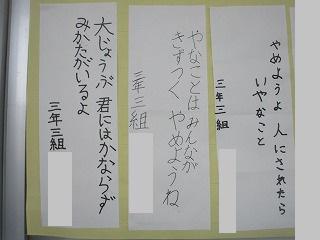 やめようよ 人にされたら
いやなこと
三年三組
やなことは みんなが
きずつく やめようね
三年三組
大じょうぶ 君にはかならず
みかたがいるよ
三年三組